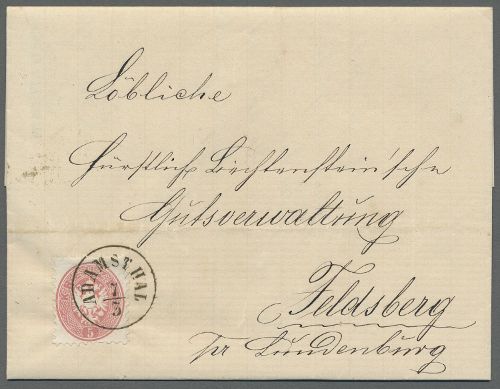 Löbliche
Fürstlich Liechtenstein'sche
Gutsverwaltung
ADAMSTHAL
7/5
5
Feldsberg
pr Lundenburg